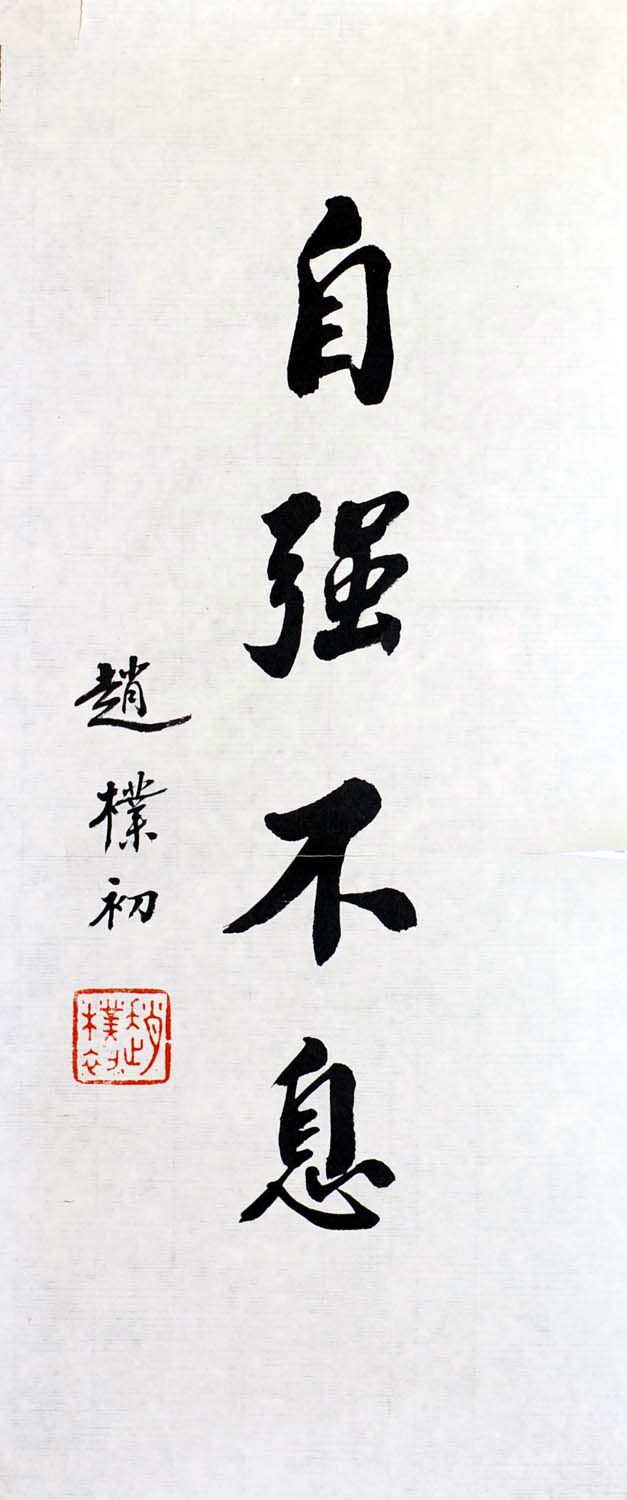 自强不息
趙樸初
趙樸初